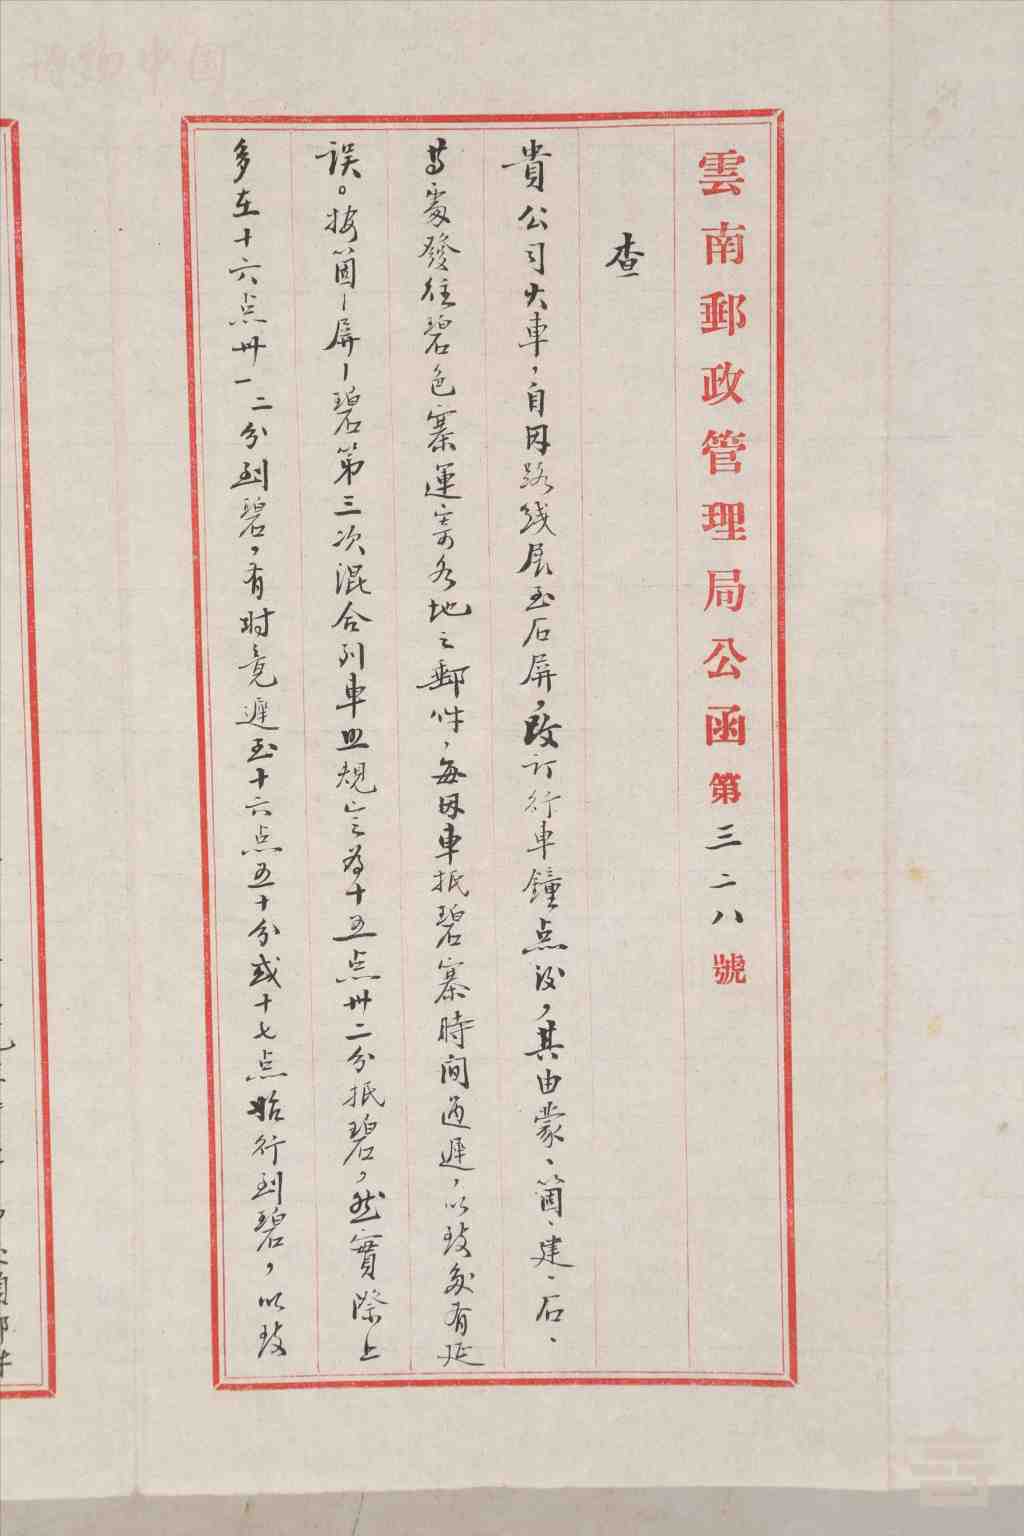 雲南郵政管理局公函第三二八號
查
貴公司火車，自因路线展至石屏，改订行车鐘点後，其由蒙、箇、建、石、
等處發往碧色寨運寄各地之郵件，每因車抵碧寨時间过遲，以致多有延
误。按箇－屏－碧第三次混合列車照規定为十五点卅二分抵碧，然實際上
多在十六点卅一二分到碧，有时竟遲至十六点五十分或十七点始行到碧，以致
博物中国